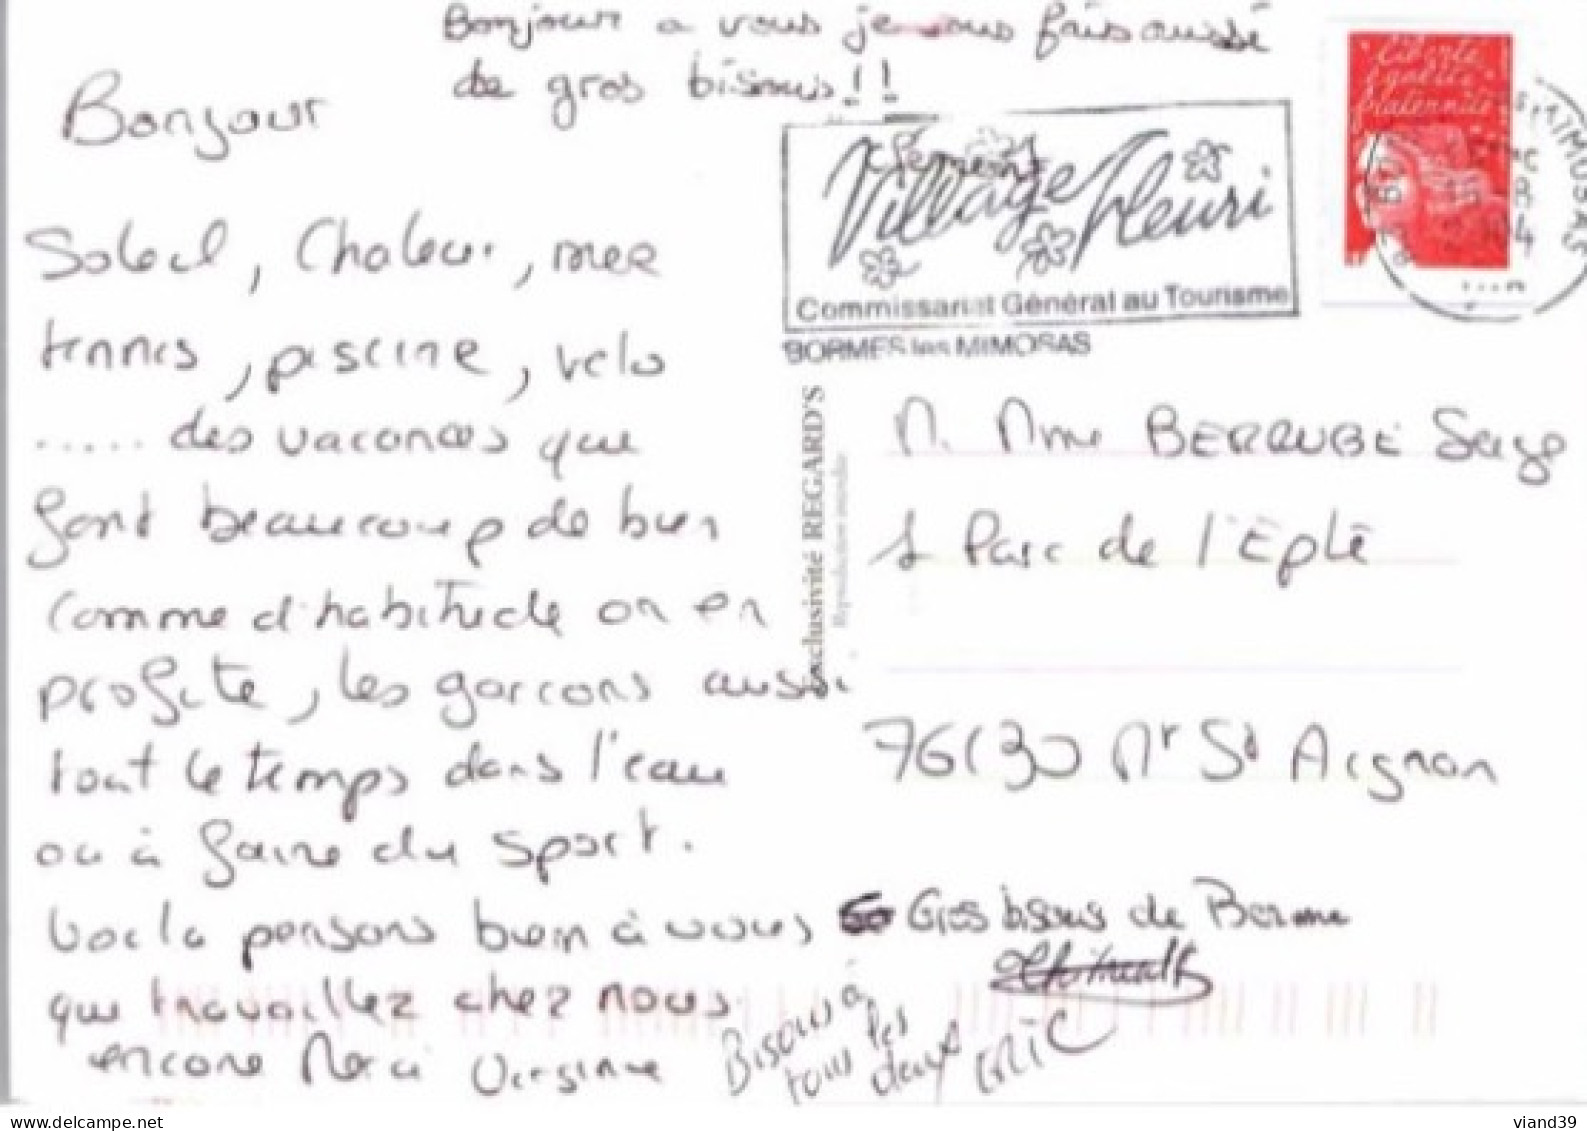 Bonjour a vous je vous fais aussi
de gros bisous !!
Clement
Bonjour
Soleil, Chaleur, mer
tennis, piscine, velo
..... des vacances qui
font beaucoup de bien
comme d'habitude on en
profite, les garcons aussi
tout le temps dans l'eau
ou à faire du sport.
Voila pensons bien à vous
qui travaillez chez nous
encore Merci Virginie
Village Fleuri
Commissariat Général au Tourisme
BORMES les MIMOSAS
Liberté
égalité
fraternité
S MIMOSAS
exclusivité REGARD'S
Reproduction interdite
M. Mme BERRUBÉ Serge
1 Parc de l'Epte
76130 Mt St Aignan
Gros bisous de Borme
Bisous à
tous les
deux
ERIC
viand39